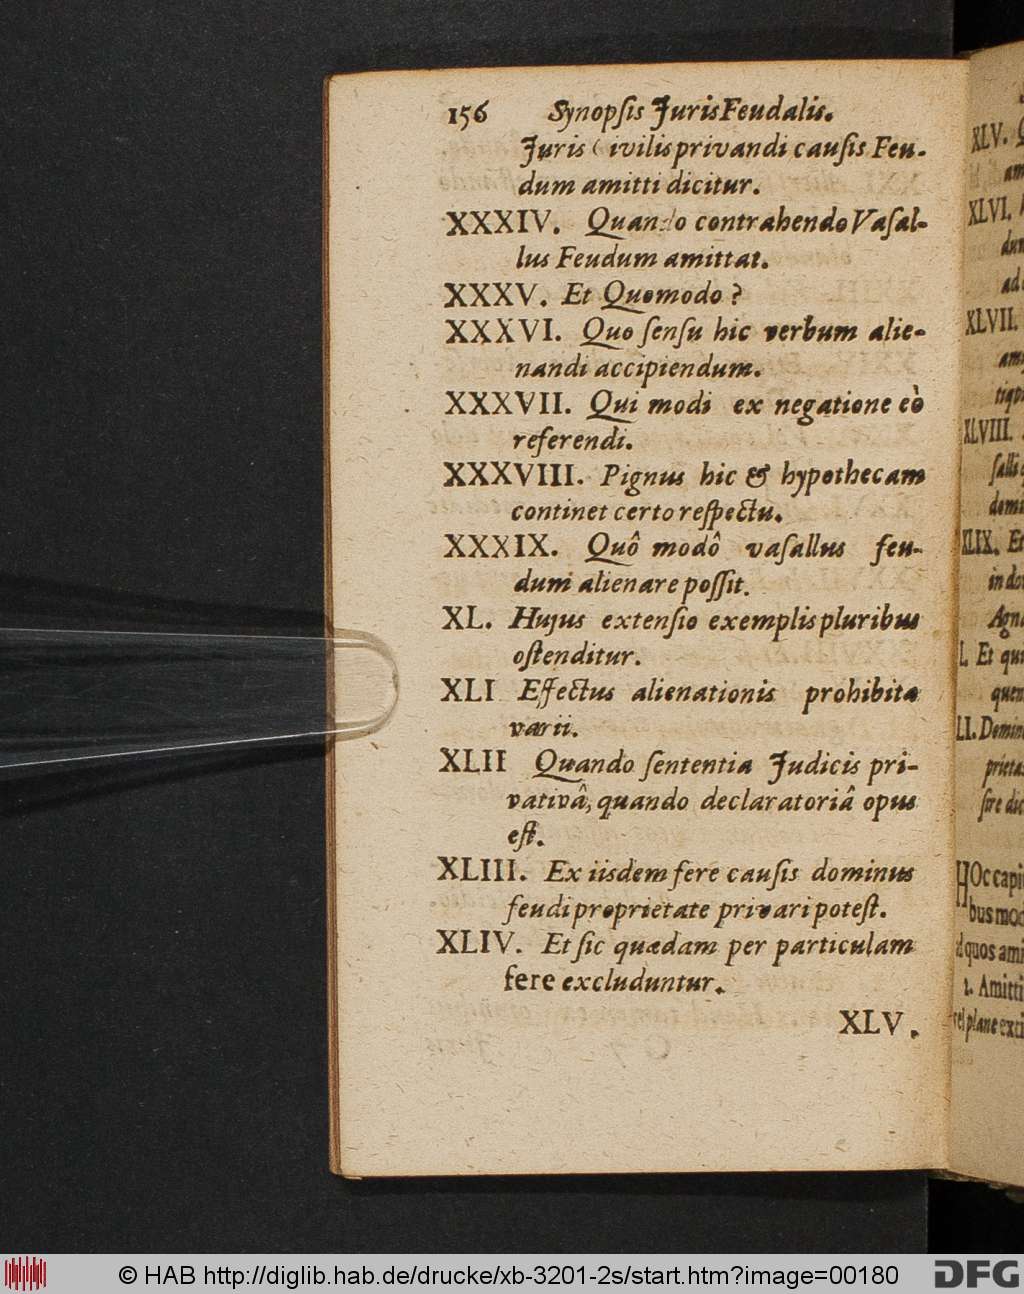 156 Synopſis Juris Feudalis.
Juris Civilis privandi cauſis Feu-
dum amitti dicitur.
XXXIV. Quando contrahendo Vaſal-
lus Feudum amittat.
XXXV. Et Quomodo ?
XXXVI. Quo ſenſu hic verbum alie-
nandi accipiendum.
XXXVII. Qui modi ex negatione eò
referendi.
XXXVIII. Pignus hic & hypothecam
continet certo reſpectu.
XXXIX. Quô modô vaſallus feu-
dum alienare poſſit.
XL. Hujus extenſio exemplis pluribus
oſtenditur.
XLI Effectus alienationis prohibitæ
varii.
XLII Quando ſententia Judicis pri-
vativâ, quando declaratoriâ opus
eſt.
XLIII. Ex iisdem fere cauſis dominus
feudi proprietate privari poteſt.
XLIV. Et ſic quædam per particulam
fere excluduntur.
XLV.
XLV.
am
XLVI.
XLVII.
XLVIII.
XLIX. Et
L. Et
LI.
HOc
bus
quos
1. Amitti
vel plane
© HAB http://diglib.hab.de/drucke/xb-3201-2s/start.htm?image=00180
DFG